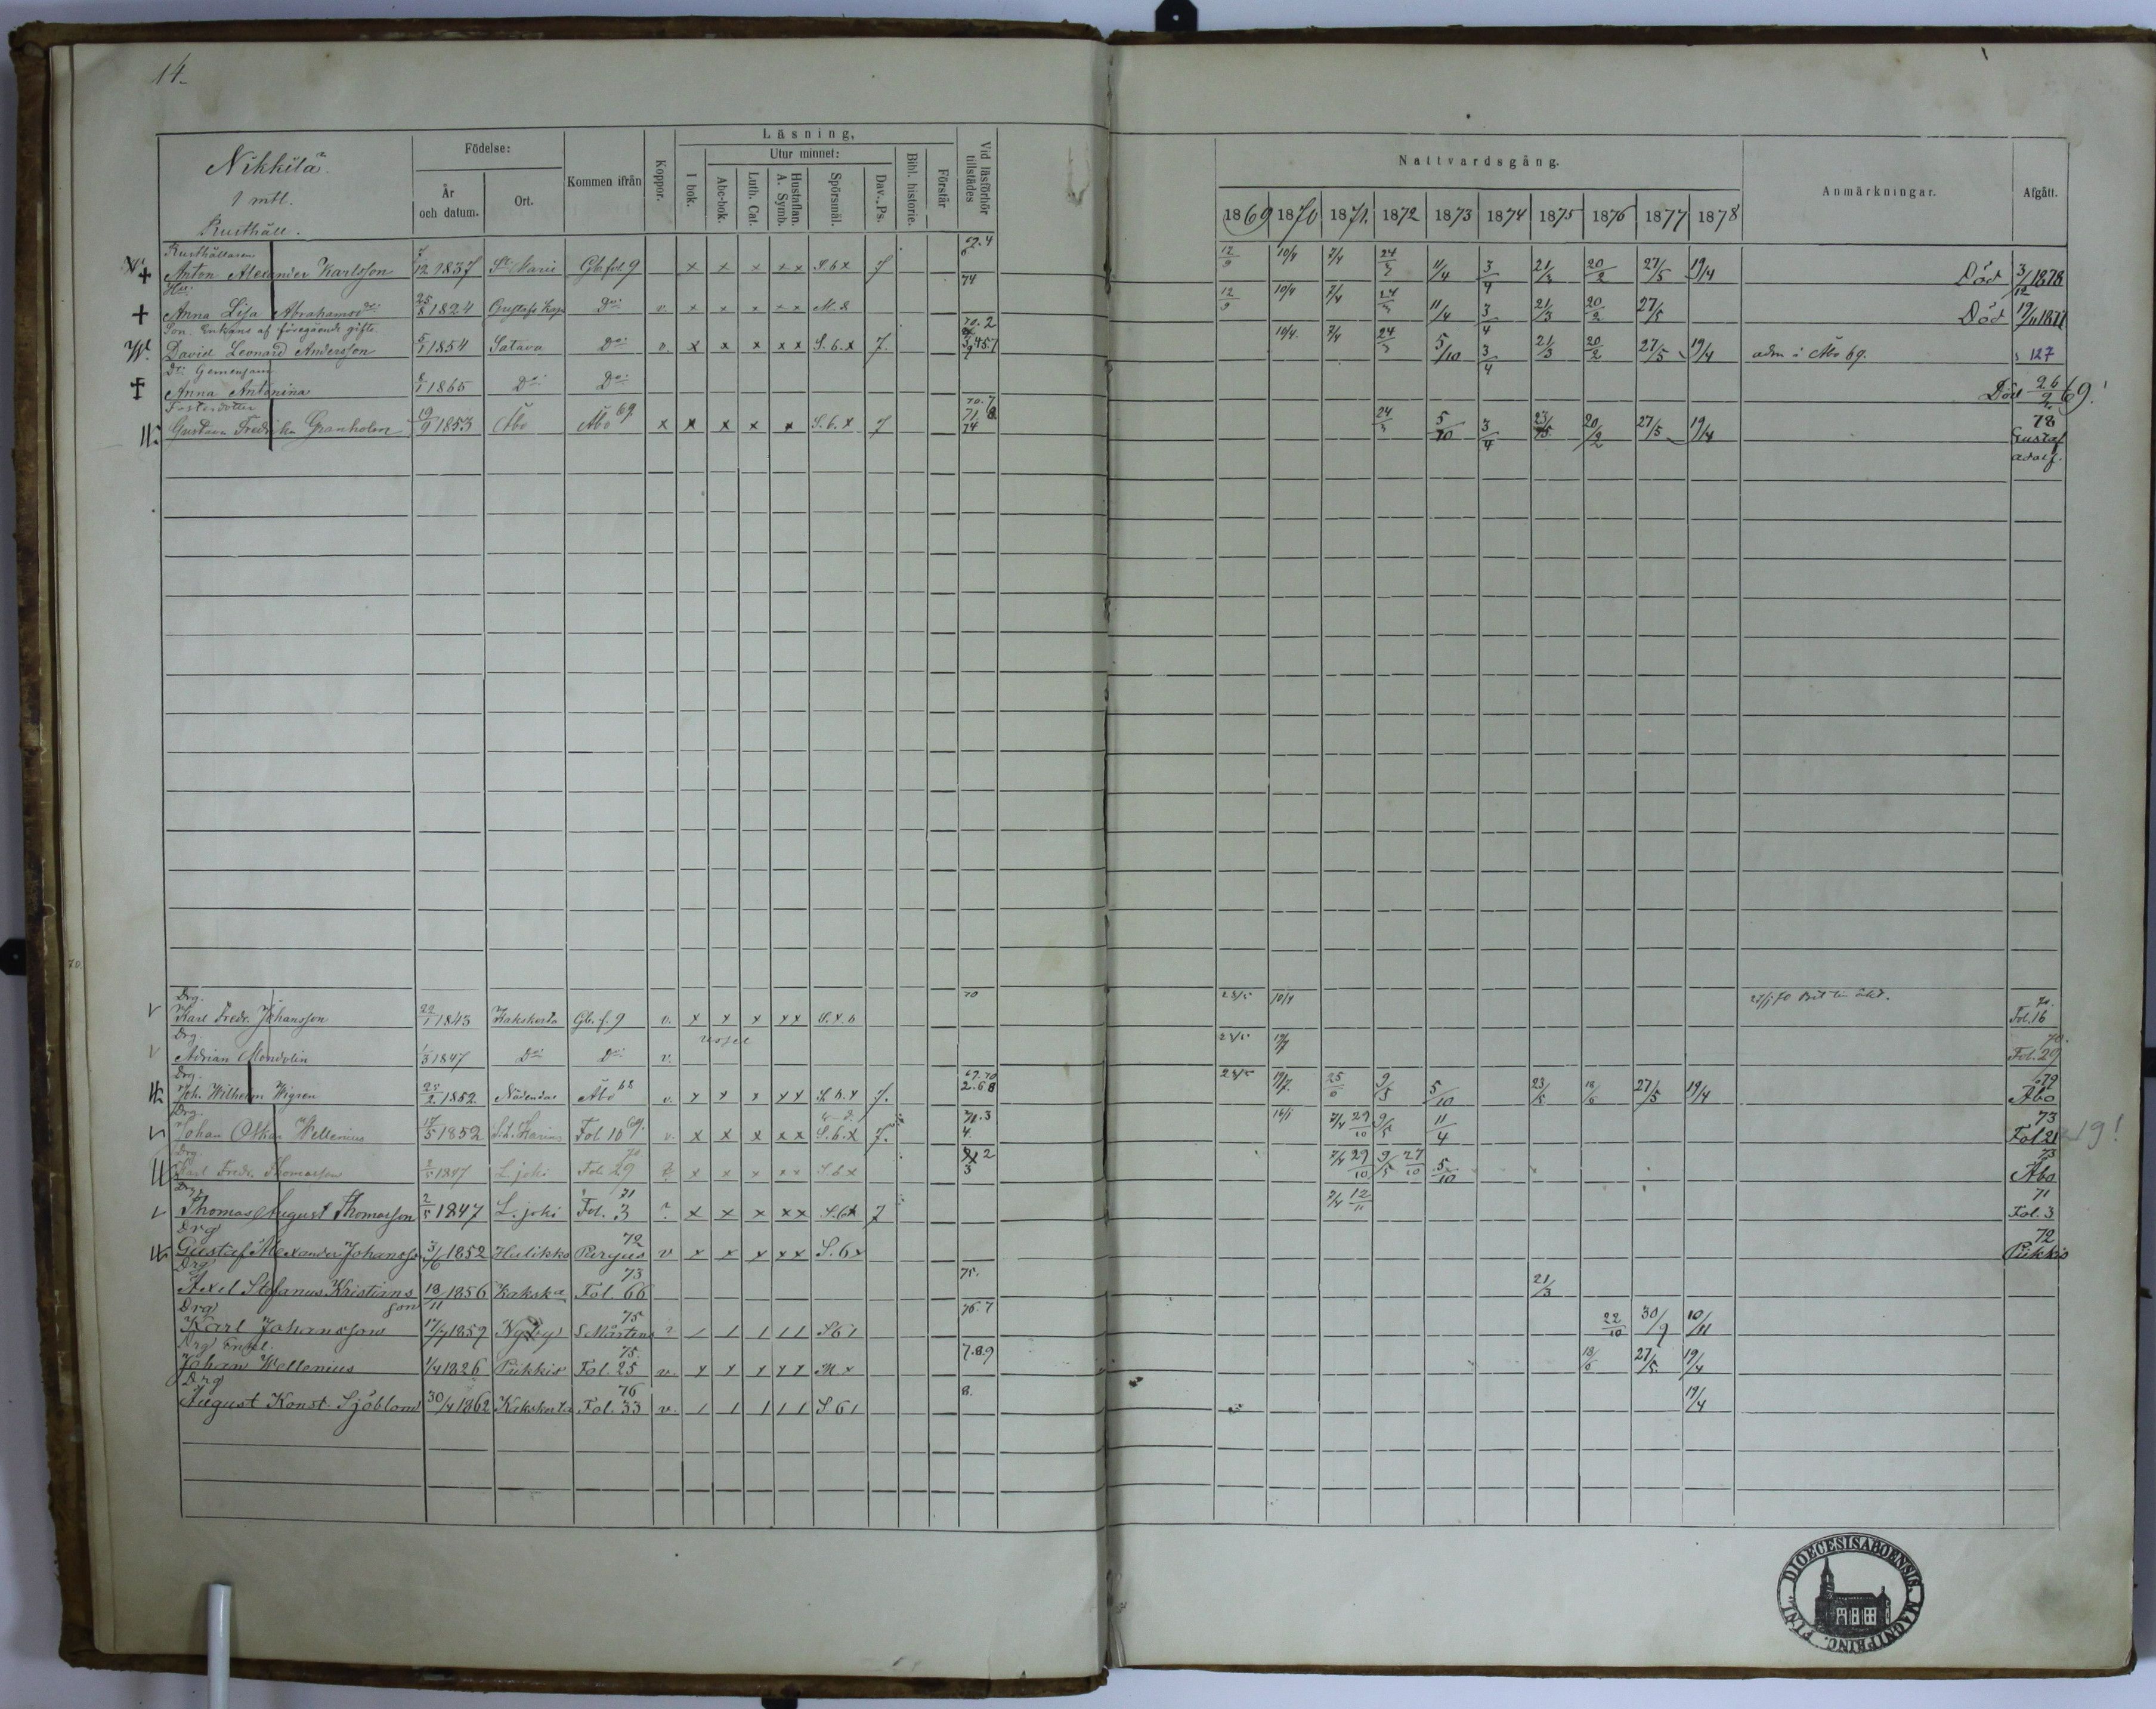 14.
Nikkilä.
1 mtl.
Rusthåll.
Födelse:
År och datum.
Ort.
Kommen ifrån
Koppor.
Läsning,
I bok.
Utur minnet:
Abc-bok.
Luth. Cat.
Hustaflan. A. Symb.
Spörsmål.
Dav. Ps.
Bibl. historie.
Förstår
Vid läsförhör tillstädes
Nattvardsgång.
1869 1870 1871. 1872 1873 1874 1875 1876 1877 1878
Anmärkningar.
Afgått.
Rusthållaren
Anton Alexander Karlsson 7/12 1837 St Marie Gb. fol 9 x x x x x S. 6 x 7 74 12/9 10/4 7/4 24/3 11/4 3/4 21/3 20/2 27/5 19/4 Död 3/12 1878
Hu:
Anna Lisa Abrahamsdr: 25/8 1824 Gustafs Kap Do: v. x x x x x M. 8 12/9 10/4 7/4 24/3 11/4 3/4 21/3 20/2 27/5 Död 19/11 1877
Son. Enkans af föregående gifte
David Leonard Andersson 5/1 1854 Satava Do: v. x x x x x S. 6. x 7. 10/4. 7/4 24/3 5/10 3/4 21/3 20/2 27/5 19/4 adm i Åbo 69. 127
Dr: Gemensam
Anna Antonina 1865 Do: Do: Död 26/2 69!
Fosterdotter
Gustava Fredrika Granholm 19/9 1853 Åbo Åbo 69. x x x x x S. 6. x 7 70. 7 71. 8 74 24/3 5/10 3/4 23/5 20/2 27/5 19/4 78 Gustaf Adolf.
Drg.
Karl Fredr. Johansson 29/1 1843 Kakskerta Gb. f. 9 v. x x x x x S. x. 6 70 23/5 10/4 70. Fol. 16
Drg.
Adrian Mandolin 1/3 1847 Do: Do: v. ussel 23/5 70. Fol. 29
Drg.
Joh. Wilhelm Wigren 25/2 1852 Nådendal Åbo 68 v. x x x x x S. 6. x 7. 69. 70 2. 6 8 23/5 9/5 5/10 23/5 18/6 27/5 19/4 79 Åbo
Drg.
Johan Oskar Wellenius 17/5 1852 S:t. Karins Fol. 10 69. v. x x x x x S. 6. x 7. 71. 3 4. 7/4 29/10 9/5 11/4 73 Fol 21 19!
Drg
Karl Fredr. Thomasson 1847 L. joki Fol. 29 70 x x x x x S. 6 x 3 7/4 29/10 9/5 27/10 5/10 73 Åbo
Drg.
Thomas August Thomasson 2/5 1847 L. joki Fol. 3 71 ? x x x x x S. 6 x 7 7/4 12/11 71 Fol. 3
Drg
Gustaf Alexander Johansson 3/6 1852 Halikko Peryus 72 v x x x x x S. 6 x 72 Pikkis
Drg
Axel Stefanus Kristiansson 18/11 1856 Kakska Fol. 66 73 75. 21/3
Drg
Karl Johansson 17/7 1859 Nyby S Mårtens 75 ? / / / / / S 6 / 76. 7 22/10 30/9 10/11
Drg Enkl.
Johan Wellenius 1/4 1826 Pikkis Fol. 25 75. v. x x x x x M x 7. 8. 9 18/6 27/5. 19/4
Drg
August Konst. Sjöblom 30/4 1862 Kakskerta Fol. 33 76 v. / / / / / S 6 / 8. 19/4
DIOECESIS ABOENSIS. MAGNI PRINC. FINL.